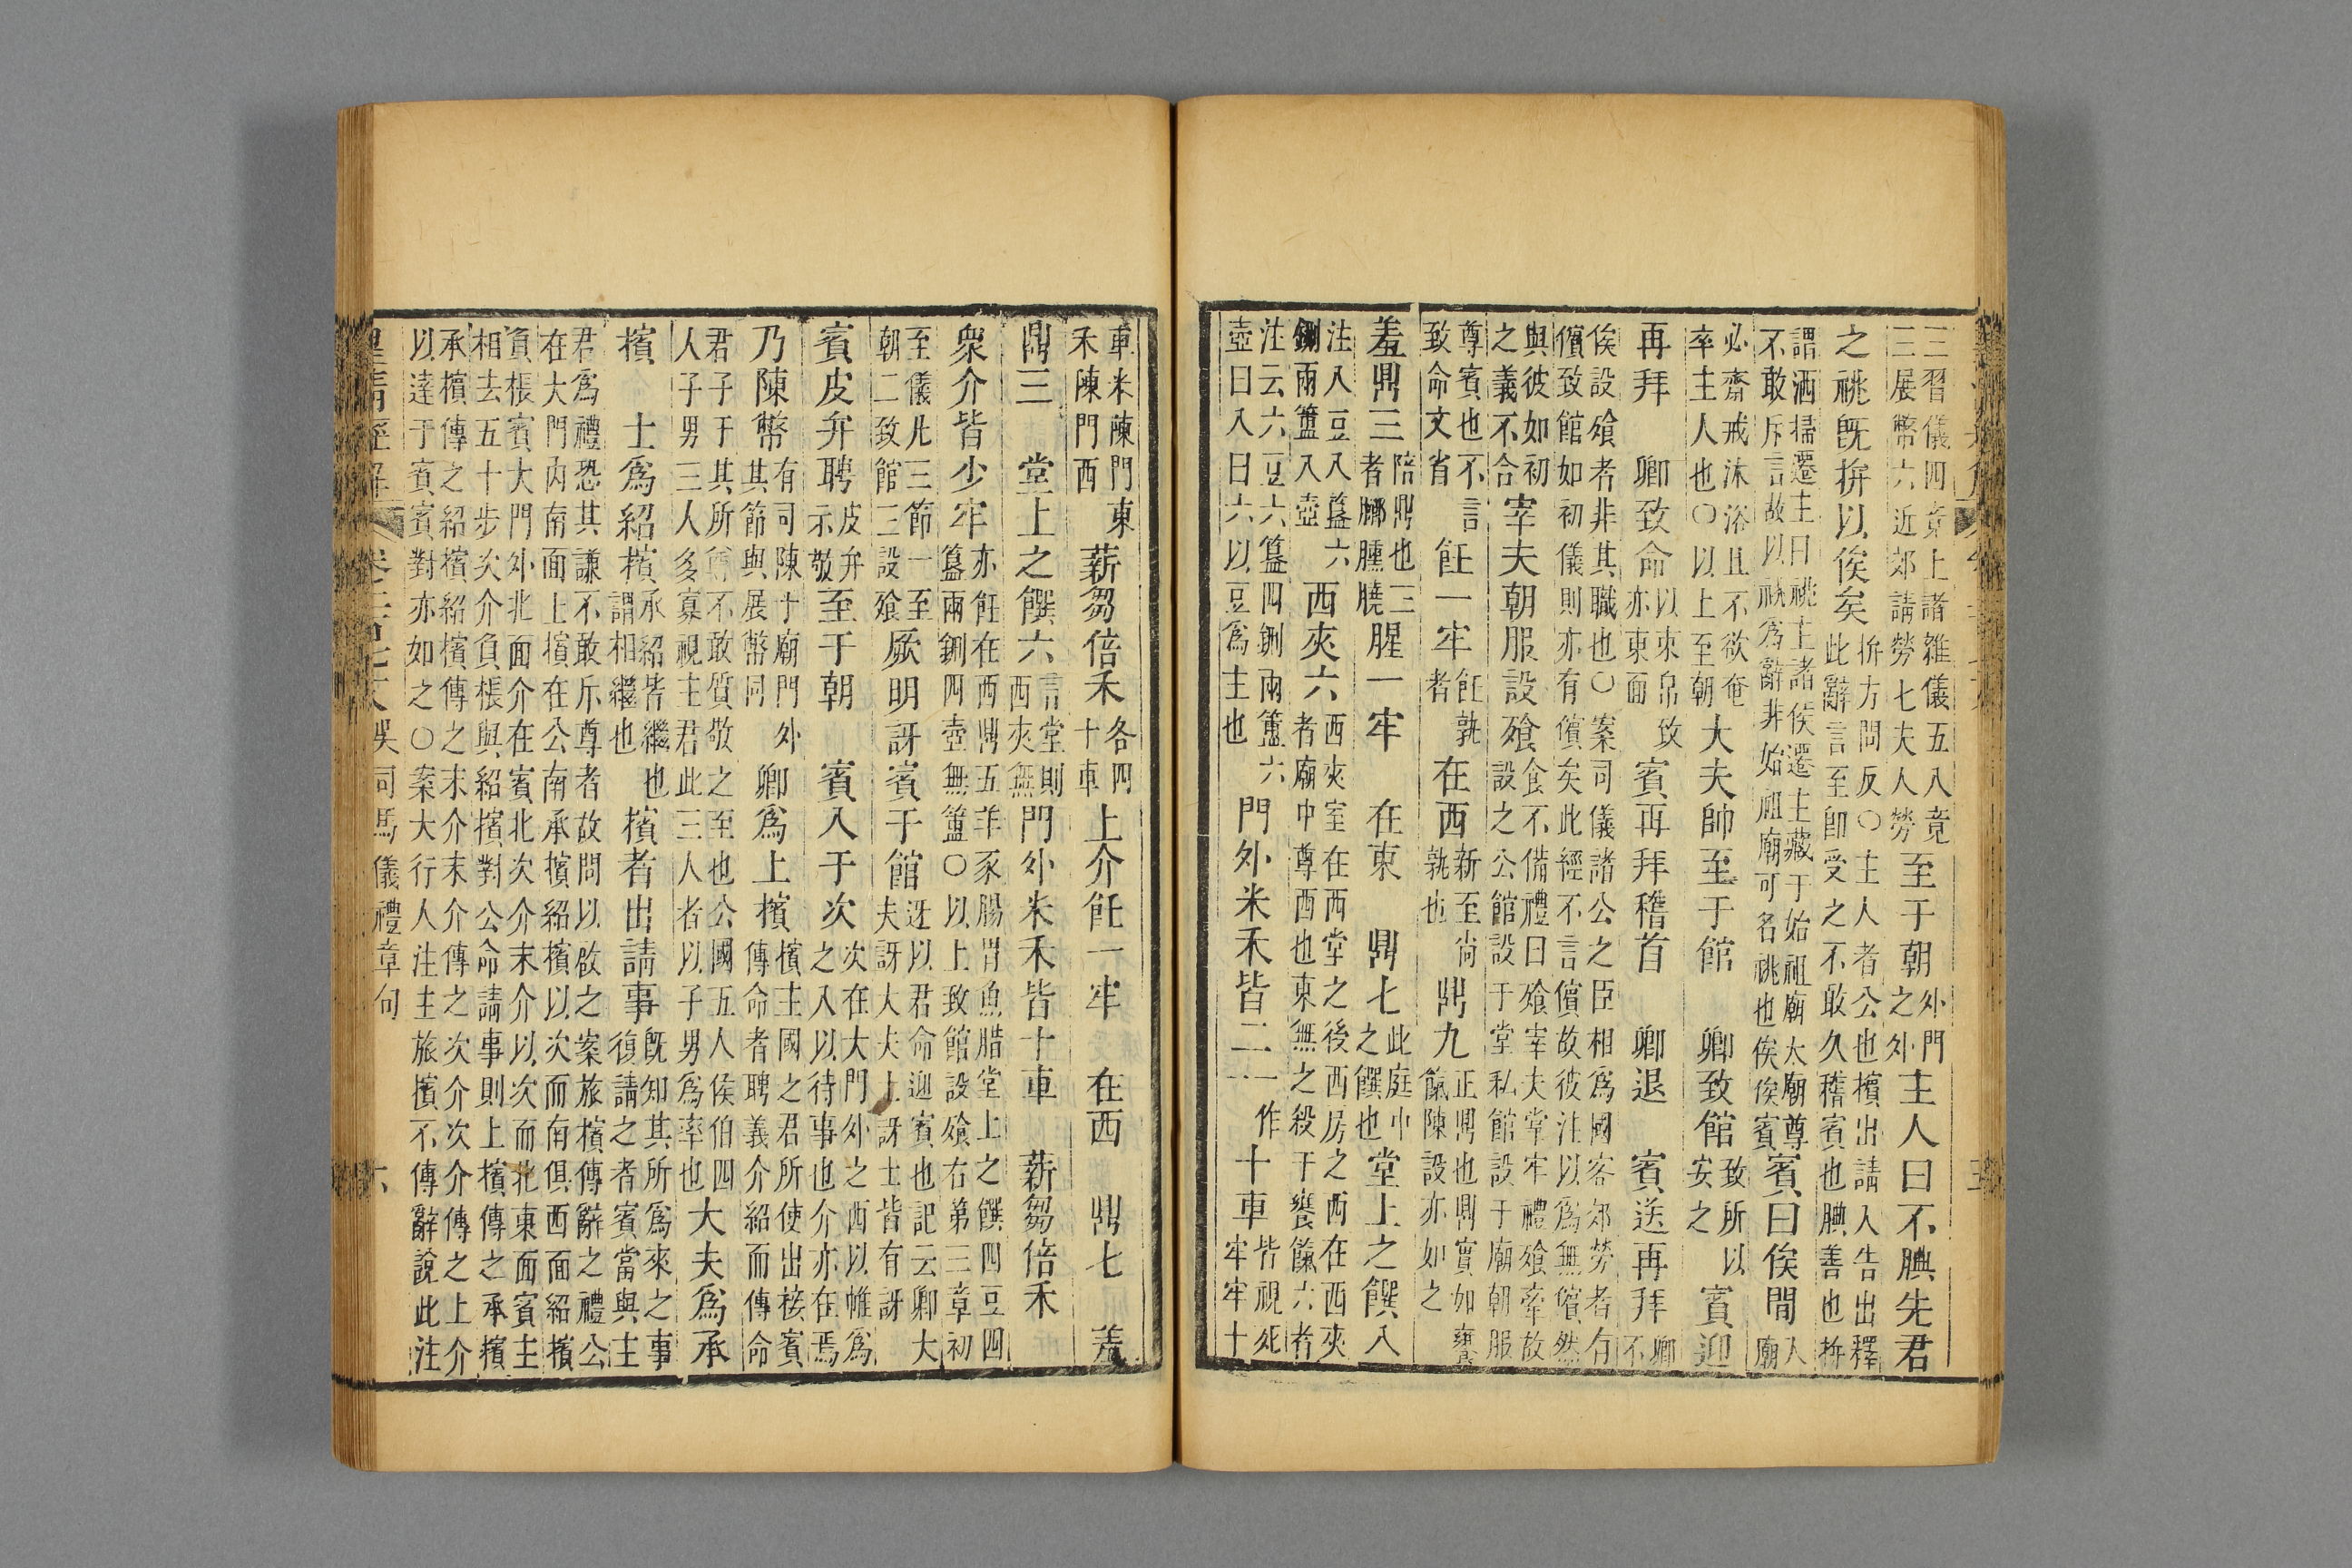 三習儀四竟上諸雜儀五入竟
三展幣六近郊請勞七夫人勞
至于朝
外門
之外
主人曰不腆先君
之祧既拚以俟矣
拚方問反○主人者公也擯出請入告出釋
此辭言至卽受之不敢久稽賓也腆善也拚
謂洒掃遷主曰祧主諸侯遷主藏于始祖廟太廟尊
不敢斥言故以祧爲辭非始祖廟可名祧也俟俟賓
賓曰俟閒
入
廟
必齋戒沐浴且不欲奄
率主人也○以上至朝
大夫帥至于館 卿致館
致所以
安之
賓迎
再拜 卿致命
以束帛致
亦東面
賓再拜稽首 卿退 賓送再拜
卿
不
俟設飧者非其職也○案司儀諸公之臣相爲國客郊勞者有
儐致館如初儀則亦有儐矣此經不言儐故彼注以爲無儐然
與彼如初
之義不合
宰夫朝服設飧
食不備禮曰飧宰夫堂牢禮飧牽故
設之公館設于堂私館設于廟朝服
尊賓也不言
致命文省
飪一牢
飪孰
者
在西
新至尚
孰也
鼎九
正鼎也鼎實如饔
餼陳設亦如之
羞鼎三
陪鼎也三
者膷臐膮
腥一牢 在東 鼎七
此庭中
之饌也
堂上之饌八
注八豆八簋六
鉶兩簠八壺
西夾六
西夾室在西堂之後西房之西在西夾
者廟中尊西也東無之殺于饔餼六者
注云六豆六簋四鉶兩簠六
壺曰八曰六以豆爲主也
門外米禾皆二
一作
十車
皆視死
牢牢十
車米陳門東
禾陳門西
薪芻倍禾
各四
十車
上介飪一牢 在西 鼎七 羞
鼎三 堂上之饌六
言堂則
西夾無
門外米禾皆十車 薪芻倍禾
衆介皆少牢
亦飪在西鼎五羊豕腸胃魚腊堂上之饌四豆四
簋兩鉶四壺無簠○以上致館設飧右第三章初
至儀凡三節一至
朝二致館三設飧
厥明訝賓于館
迓以君命迎賓也記云卿大
夫訝大夫士訝士皆有訝
賓皮弁聘
皮弁
示敬
至于朝 賓入于次
次在大門外之西以帷爲
之入以待事也介亦在焉
乃陳幣
有司陳于廟門外
其節與展幣同
卿爲上擯
擯主國之君所使出接賓
傳命者聘義介紹而傳命
君子于其所尊不敢質敬之至也公國五人侯伯四
人子男三人多寡視主君此三人者以子男爲率也
大夫爲承
擯 士爲紹擯
承紹皆繼也
謂相繼也
擯者出請事
既知其所爲來之事
復請之者賓當與主
君爲禮恐其謙不敢斥尊者故問以啟之案旅擯傳辭之禮公
在大門内南面上擯在公南承擯紹擯以次而南俱西面紹擯
負棖賓大門外北面介在賓北次介末介以次而北東面賓主
相去五十步次介負棖與紹擯對公命請事則上擯傳之承擯
承擯傳之紹擯紹擯傳之末介末介傳之次介次介傳之上介
以達于賓賓對亦如之○案大行人注主旅擯不傳辭說此注
皇清經解 吳司馬儀禮章句 六